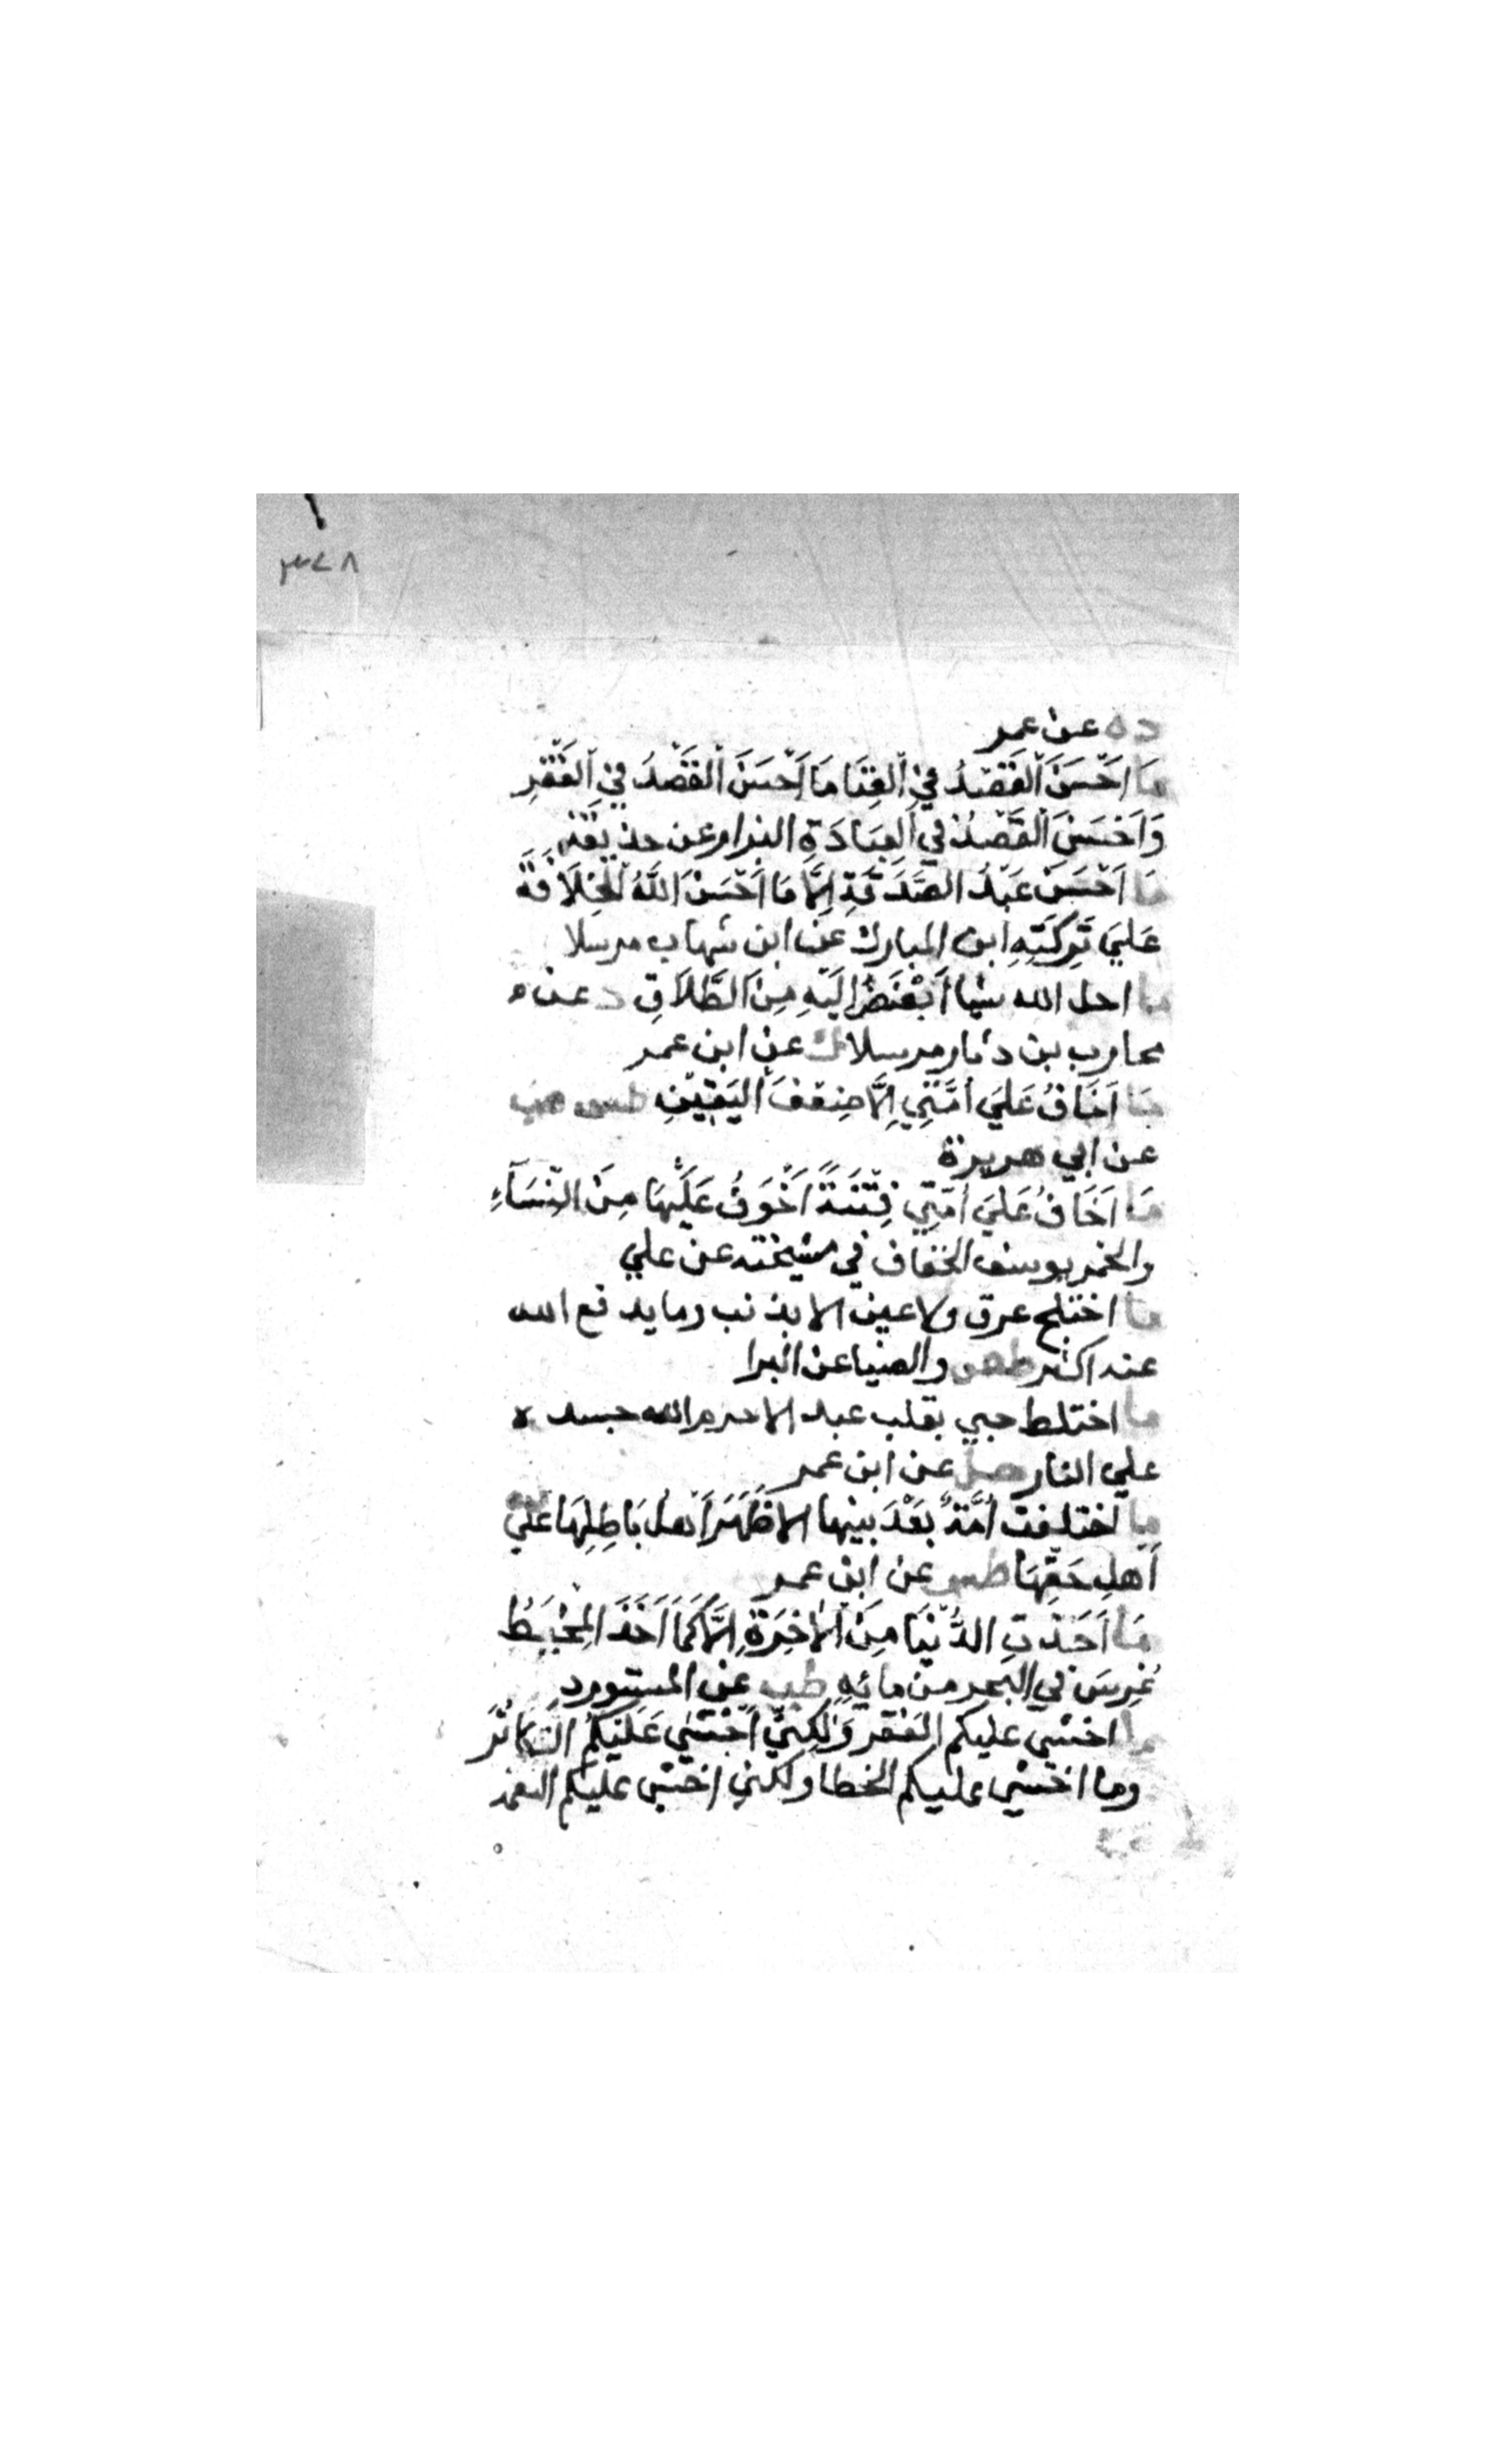 ٣٧٨
ده عن عمر
مَا اَحْسَنَ اَلقَصْدُ فِي اَلغِنَا مَا اَحْسَنَ اَلقَصْدُ فِي اَلفَقْرِ
وَاَحْسَنَ اَلقَصْدُ فِي اَلعِبَادَةِ البزار عن حذيفة
مَا اَحْسَنَ عَبْدُ الصَّدَقَةِ اِلَّا مَا اَحْسَنَ اَللَّهُ اَلخِلَافَةَ
عَلَي تَرِكَتِهِ ابن المبارك عن ابن شهاب مرسلا
ما احل الله شيا اَبْغَضَ اِلَيْهِ مِنَ الطَّلَاقِ د عن
محارب بن دثار مرسلا ك عن ابن عمر
مَا اَخَافُ عَلَي اُمَّتِي اِلَّا ضِعْفَ اَليَقِيْنِ طس هب
عن ابي هريرة
مَا اَخَافُ عَلَي اُمَّتِي فِتْنَةً اَخْوَفُ عَلَيْهَا مِنَ النِّسَآءِ
والخمر يوسف الخفاف في مشيخته عن علي
ما اختلج عرق ولا عين الا بذنب وما يدفع الله
عنه اكثر طص والضيا عن البرا
ما اختلط حبي بقلب عبد الا حرم الله جسده
علي النار حل عن ابن عمر
ما اختلفت اُمَّةٌ بَعْدَ نبيها الا ظَهَرَ اَهل بَاطِلِهَا عَلَي
اَهلِ حَقِّهَا طس عن ابن عمر
مَا اَخَذَتِ الدُّنْيَا مِنَ الْاٰخِرَةِ اِلَّا كَمَا اَخَذَ المِخْيَطُ
غُرِسَ فِي البحر من مائِهِ طب عن المستورد
ما اخشي عليكم الفقر وَلٰكِنِّي اَخْشَي عَلَيْكُمُ التَّكَاثُرَ
وما اخشي عليكم الخطا ولكني اخشي عليكم التعمد